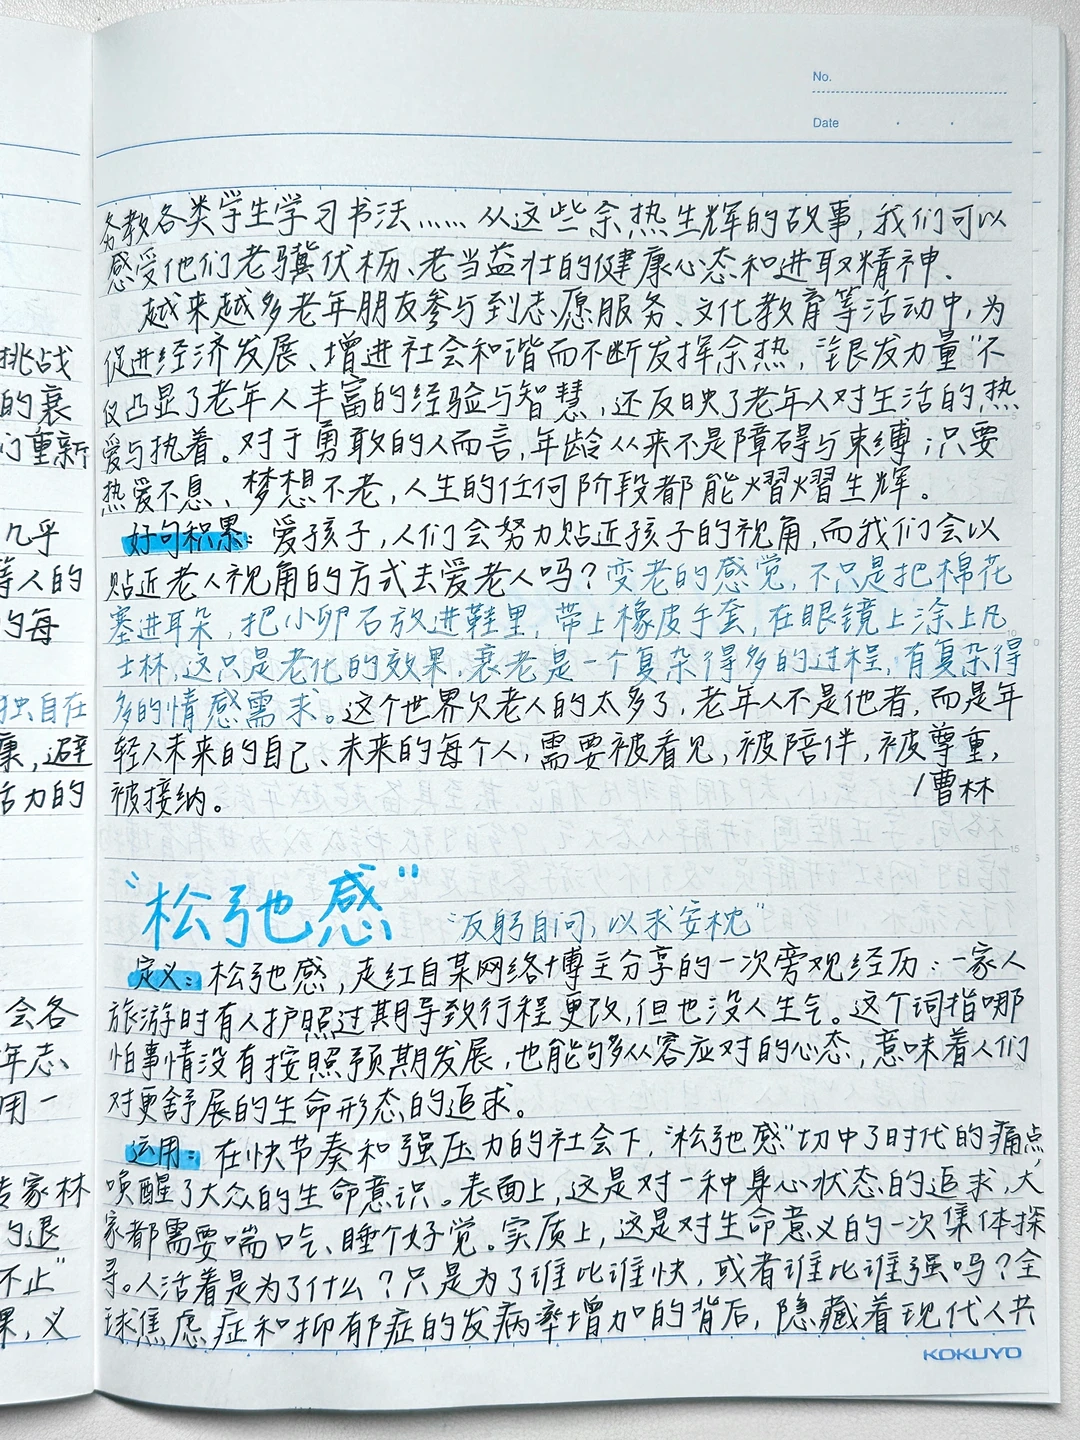 No.
Date
挑战
的衰
们重新
几乎
等人的
的每
独自在
康,避
活力的
会各
年志、
用一
专家林
的退
不止”
果,义
务教各类学生学习书法……从这些余热生辉的故事,我们可以
感受他们老骥伏枥、老当益壮的健康心态和进取精神.
越来越多老年朋友参与到志愿服务、文化教育等活动中,为
促进经济发展、增进社会和谐而不断发挥余热,“银发力量”不
仅凸显了老年人丰富的经验与智慧,还反映了老年人对生活的热
爱与执着。对于勇敢的人而言,年龄从来不是障碍与束缚;只要
热爱不息、梦想不老,人生的任何阶段都能熠熠生辉。
好句积累:爱孩子,人们会努力贴近孩子的视角,而我们会以
贴近老人视角的方式去爱老人吗?变老的感觉,不只是把棉花
塞进耳朵,把小卵石放进鞋里,带上橡皮手套,在眼镜上涂上凡
士林,这只是老化的效果.衰老是一个复杂得多的过程,有复杂得
多的情感需求。这个世界欠老人的太多了,老年人不是他者,而是年
轻人未来的自己、未来的每个人,需要被看见,被陪伴,被尊重,
被接纳。
/曹林
“松弛感”
“反躬自问,以求安枕”
定义:松弛感,走红自某网络博主分享的一次旁观经历:一家人
旅游时有人护照过期导致行程更改,但也没人生气。这个词指哪
怕事情没有按照预期发展,也能够从容应对的心态,意味着人们
对更舒展的生命形态的追求。
运用:在快节奏和强压力的社会下,“松弛感”切中了时代的痛点,
唤醒了大众的生命意识。表面上,这是对一种身心状态的追求,大
家都需要喘口气、睡个好觉。实质上,这是对生命意义的一次集体探
寻。人活着是为了什么?只是为了谁比谁快,或者谁比谁强吗?全
球焦虑症和抑郁症的发病率增加的背后,隐藏着现代人共
KOKUYO